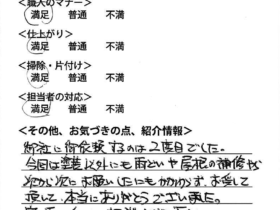 <職人のマナー>
満足 普通 不満
<仕上がり>
満足 普通 不満
<掃除・片付け>
満足 普通 不満
<担当者の対応>
満足 普通 不満
<その他、お気づきの点、紹介情報>
御社に御依頼するのは2度目でした。
今回は塗装以外にも雨といや屋根の補修が
次から次にお願いしたにもかかわらず、お安くして
頂いて、本当にありがとうございました。